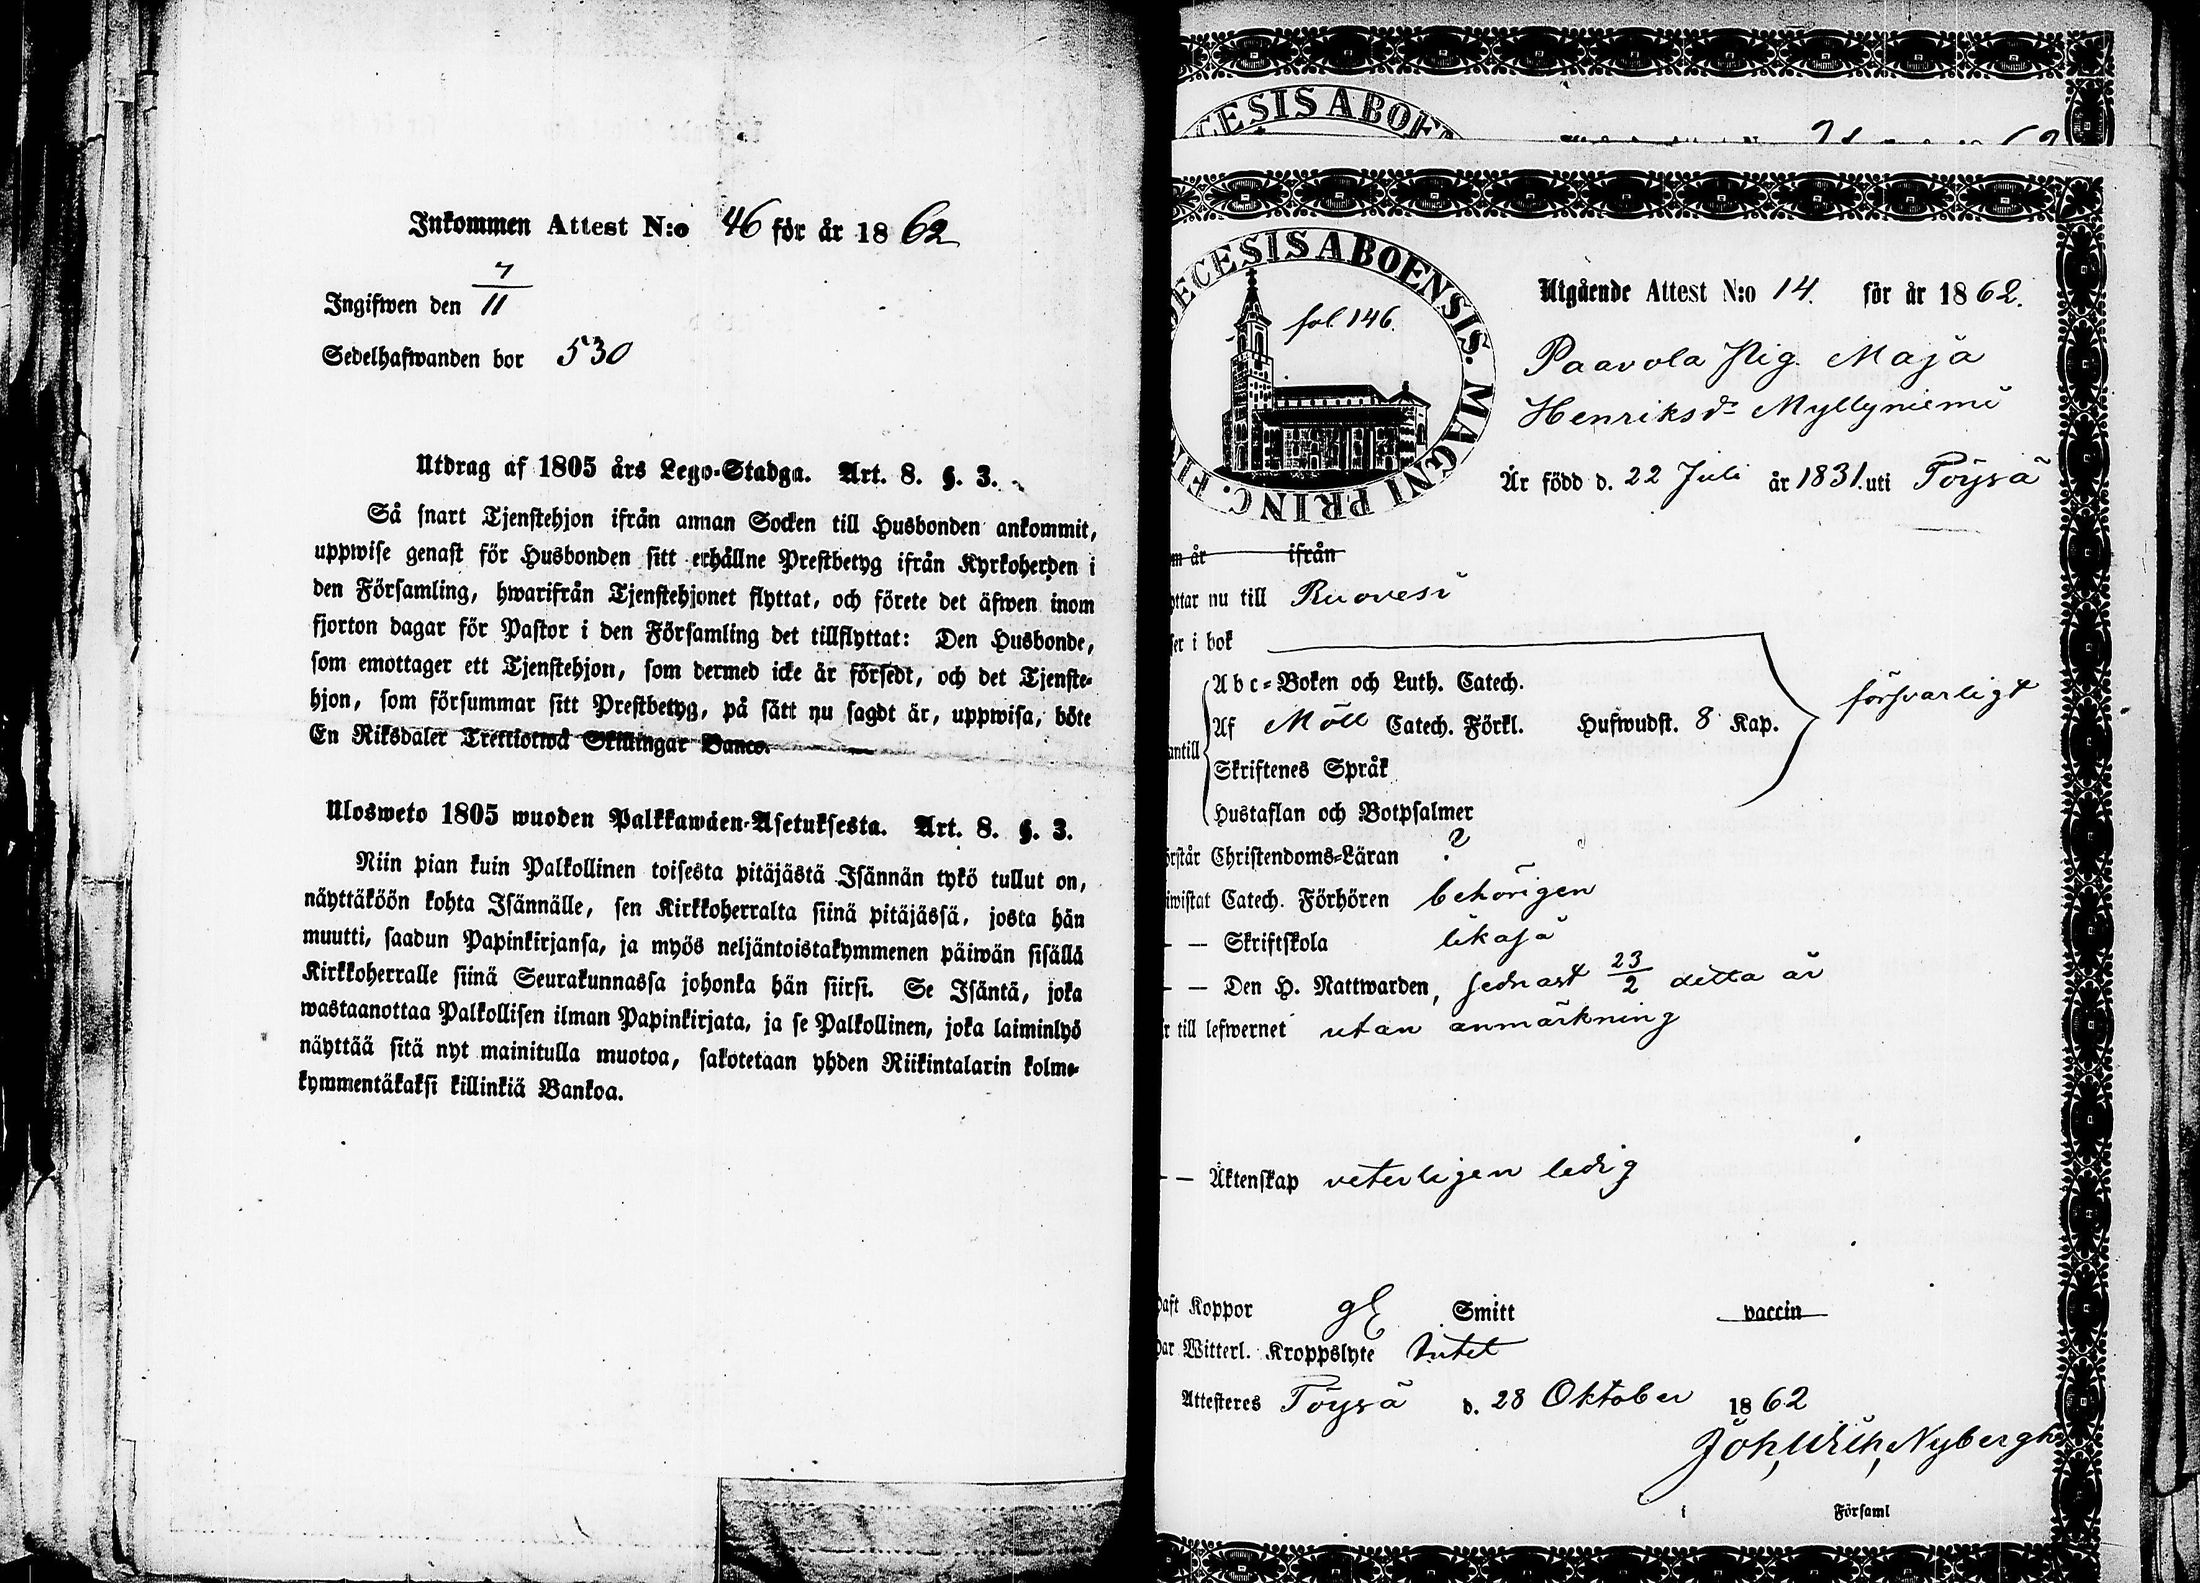 Inkommen Attest N:o 46 för år 1862
Ingifwen den 7/11
Sedelhafwanden bor 530
Utdrag af 1805 års Lego-Stadga. Art. 8. §. 3.
Så snart Tjenstehjon ifrån annan Socken till Husbonden ankommit,
uppwise genast för Husbonden sitt erhållne Prestbetyg ifrån Kyrkoherden i
den Församling, hwarifrån Tjenstehjonet flyttat, och förete det äfwen inom
fjorton dagar för Pastor i den Församling det tillflyttat: Den Husbonde,
som emottager ett Tjenstehjon, som dermed icke är försedt, och det Tjenste-
hjon, som försummar sitt Prestbetyg, på sätt nu sagdt är, uppwisa, böte
En Riksdaler Trettiotwå Skillingar Banco.
Ulosweto 1805 wuoden Palkkawäen-Asetuksesta. Art. 8. §. 3.
Niin pian kuin Palkollinen toisesta pitäjästä Isännän tykö tullut on,
näyttäköön kohta Isännälle, sen Kirkkoherralta siinä pitäjässä, josta hän
muutti, saadun Papinkirjansa, ja myös neljäntoistakymmenen päiwän sisällä
Kirkkoherralle siinä Seurakunnassa johonka hän siirsi. Se Isäntä, joka
wastaanottaa Palkollisen ilman Papinkirjata, ja se Palkollinen, joka laiminlyö
näyttää sitä nyt mainitulla muotoa, sakotetaan yhden Riikintalarin kolme-
kymmentäkaksi killinkiä Bankoa.
CESIS ABOEN
ECESIS ABOENSIS. MAGNI PRINC. FI
fol 146.
Utgående Attest N:o 14. för år 1862.
Paavola Pig. Maja
Henriksdr Myllyniemi
Är född d. 22 Juli år 1831. uti Töysä
m år ifrån
yttar nu till Ruovesi
ser i bok
Abc-Boken och Luth. Catech.
Af Möll Catech. Förkl. Hufwudst. 8 Kap. försvarligt
antill
Skriftenes Språk
Hustaflan och Botpsalmer
örstår Christendoms-Läran ?
iwistat Catech. Förhören behörigen
- - Skriftskola likaså
- - Den H. Nattwarden, sednast 23/2 detta år
r till lefwernet utan anmärkning
- - Äktenskap veterligen ledig
haft Koppor Smitt vaccin
har Witterl. Kroppslyte Intet
Attesteres Töysä d. 28 Oktober 1862
Joh, Wilh, Nybergh
i Församl